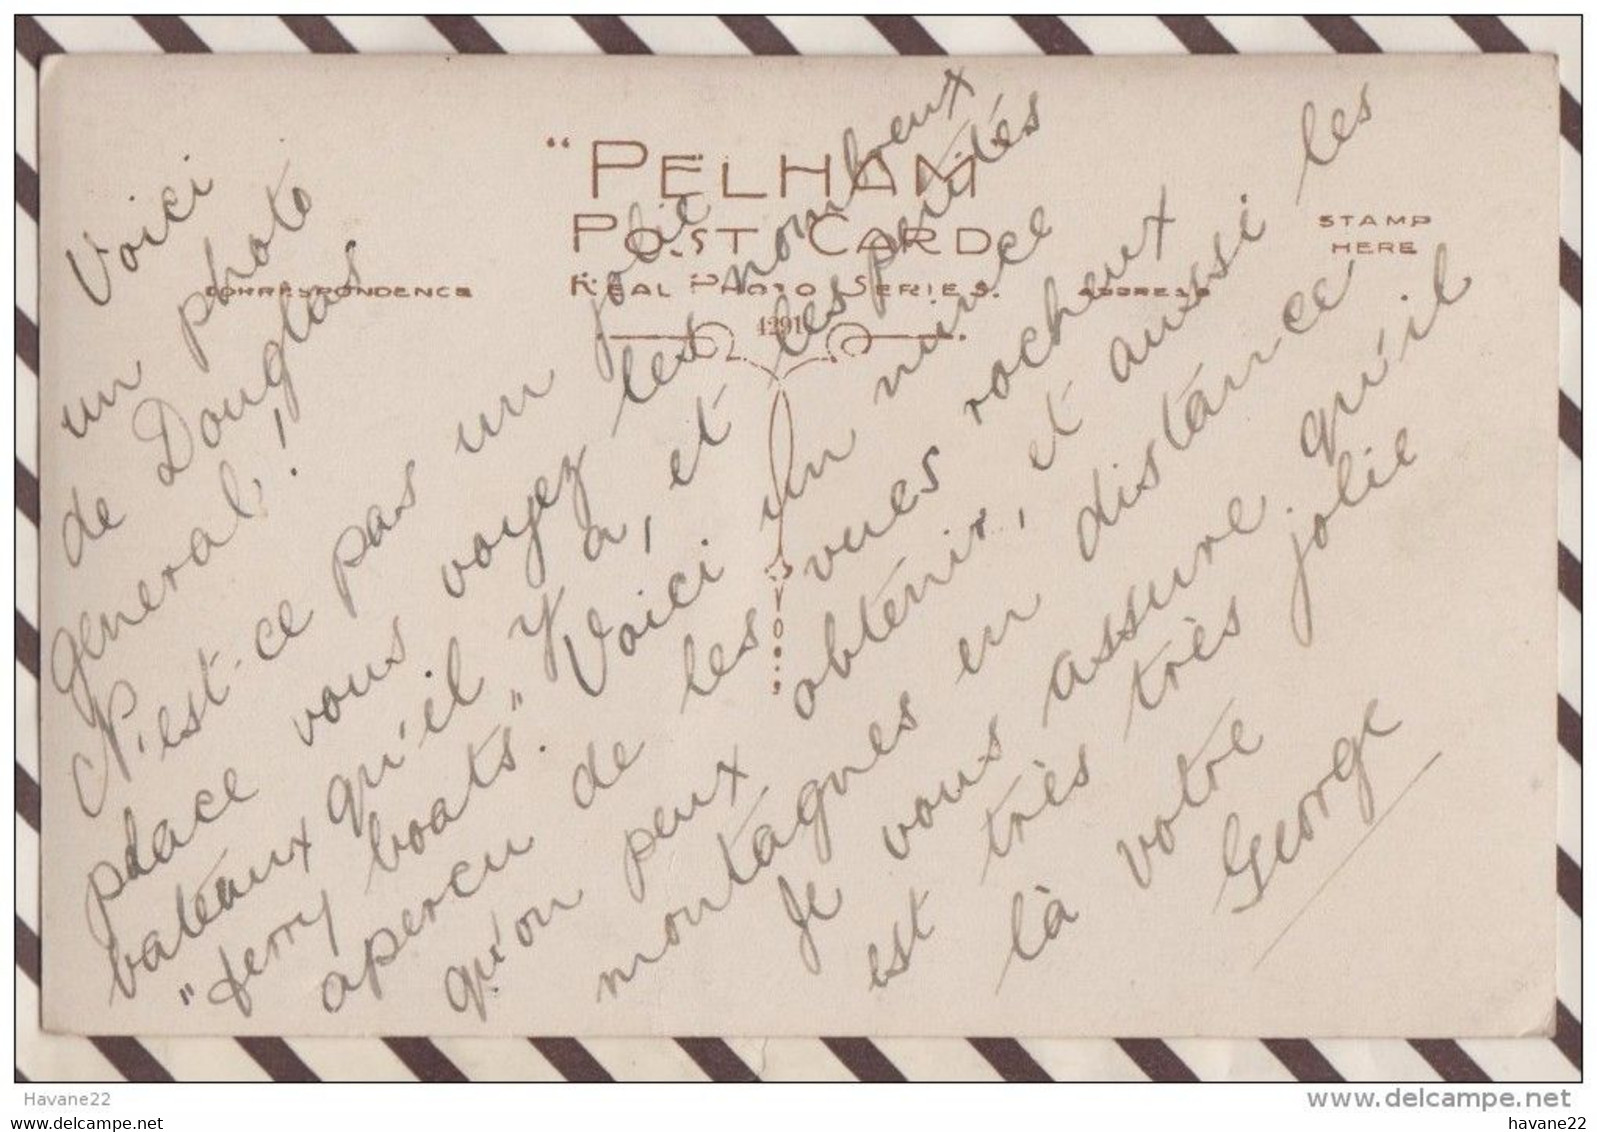 "PELHAM"
POST CARD
REAL PHOTO SERIES.
CORRESPONDENCE
ADDRESS
STAMP
HERE
4291
Voici
un photo
de Douglas
général!
N'est-ce pas un jolie
place vous voyez les nombeux
bateaux qu'il y a, et les petités
"ferry boats". Voici un mince
apercu de les vues rocheux
qu'on peux obtenir, et aussi les
montagnes en distance
Je vous assure qu'il
est très très jolie
là votre
George
Havane22
www.delcampe.net
Havane22
www.delcampe.net
havane22